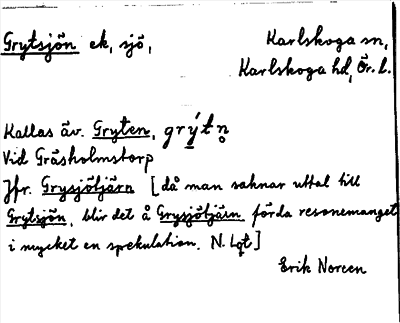 Grytsjön ek, sjö, Karlskoga sn,
Karlskoga hd, Ör. l.
Kallas äv. Gryten, grý̱tn̥
Vid Gräsholmstorp
Jfr. Grysjötjärn [då man saknar uttal till
Grytsjön, blir det å Grysjötjärn förda resonemanget
i mycket en spekulation. N. Lqt]
Erik Noreen